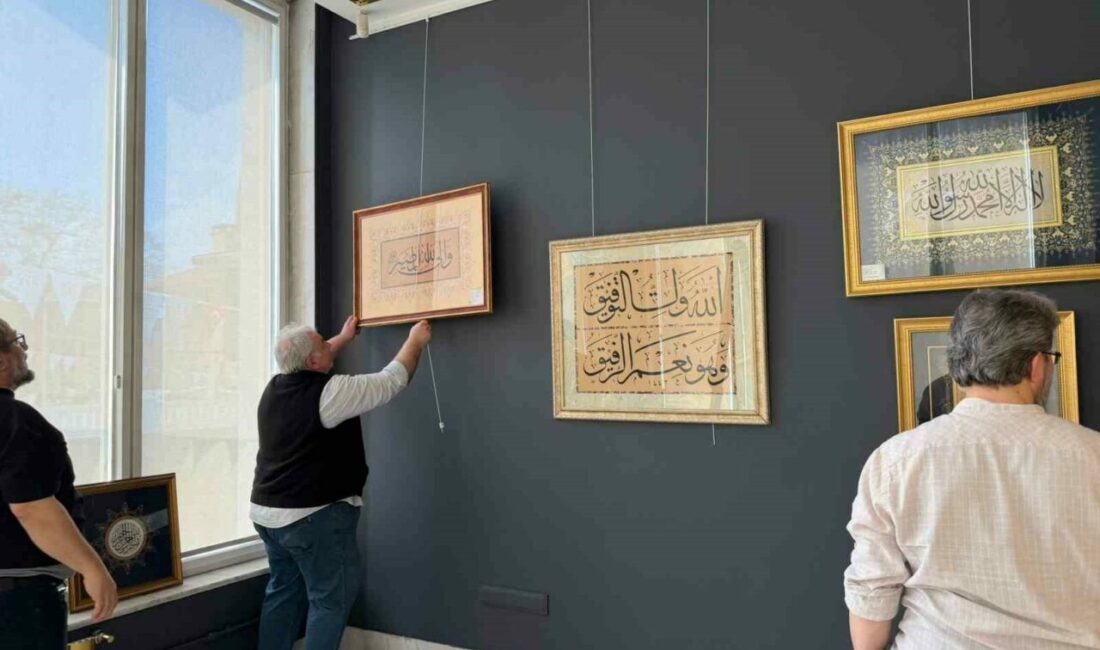 والى الله المصير
الله ولي التوفيق
وهو نعم الرفيق
لا اله الا الله محمد رسول الله